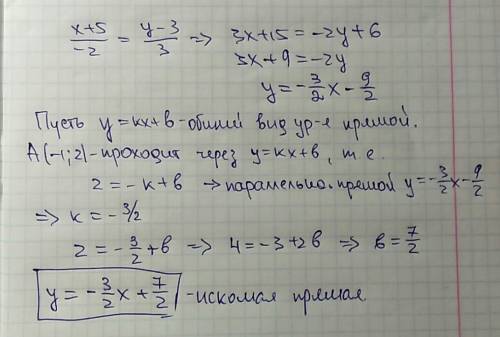 x+5/-2 = y-3/3 => 3x+15=-2y+6
3x+9=-2y
y=-3/2x-9/2
Пусть y=kx+b-общий вид ур-е прямой.
A(-1;2)-проходит через y=kx+b, т.е.
2=-k+b → паралельно.прямой y=-3/2x-9/2
=> k=-3/2
2=-3/2+b => 4=-3+2b => b=7/2
y=-3/2x+7/2 -искомая прямая